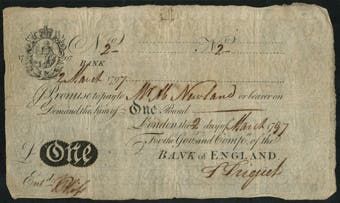 No 2 No 2
BANK
2 March 1797
I Promise to pay to Mr Abm Newland or bearer on
Demand the Sum of One Pound
London the 2 day of March 1797
For the Gov. and Compa. of the
BANK of ENGLAND
£ One
Entd.